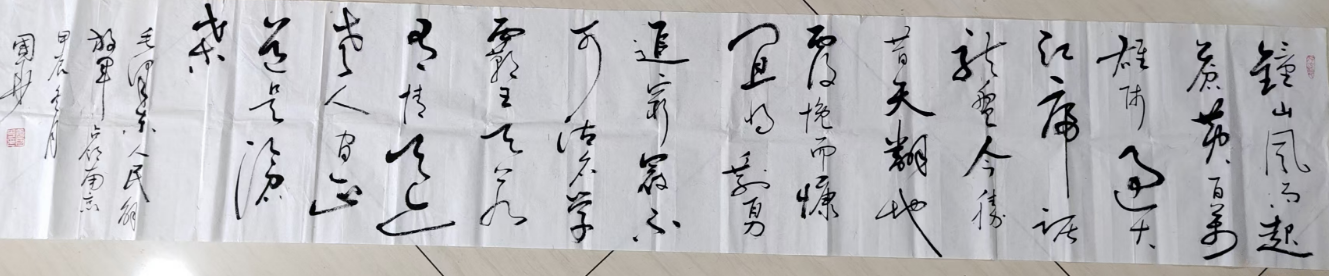 鐘山風雨起
蒼黄百萬
雄师過大
江虎踞
龙盘今勝
昔天翻地
覆慨而慷
宜将剩勇
追窮寇不
可沽名学
霸王天若
有情天亦
老人间正
道是滄
桑
毛澤东人民解
放軍占领南京
甲辰冬月
国